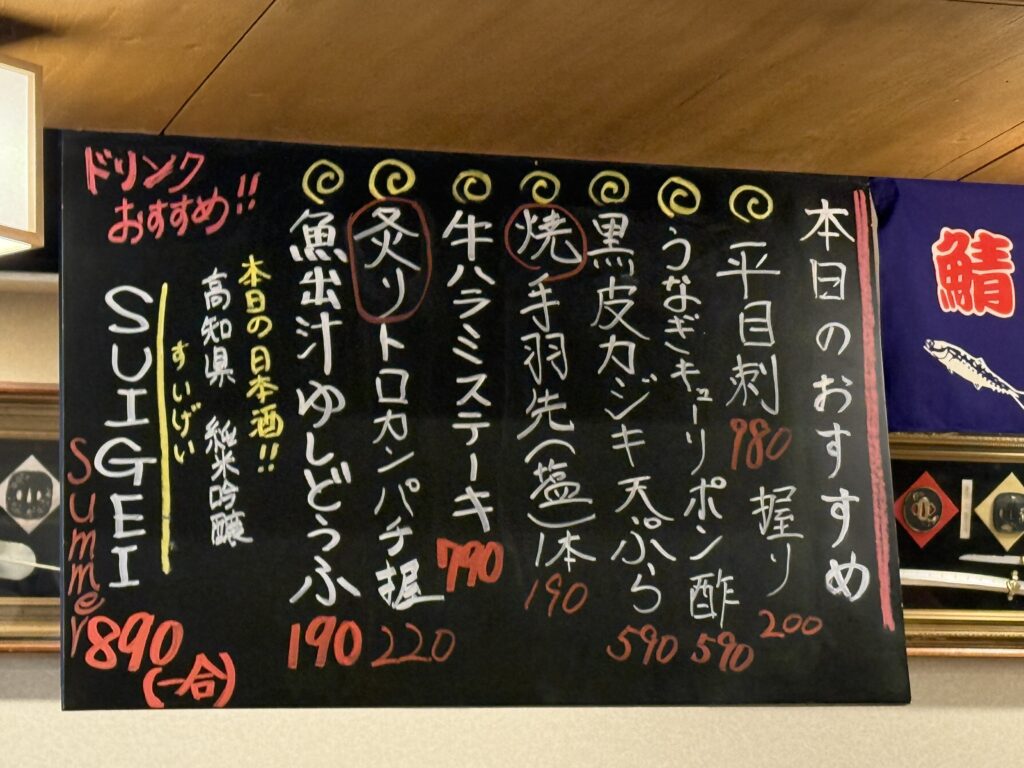 本日のおすすめ
平目刺 980 握り 200
うなぎキューリポン酢 590
黒皮カジキ天ぷら 590
焼手羽先(塩)1本 190
牛ハラミステーキ 790
炙りトロカンパチ握 220
魚出汁ゆしどうふ 190
ドリンク
おすすめ!!
本日の日本酒!!
高知県 純米吟醸
すいげい
SUIGEI
Summer
890
(一合)
鯖